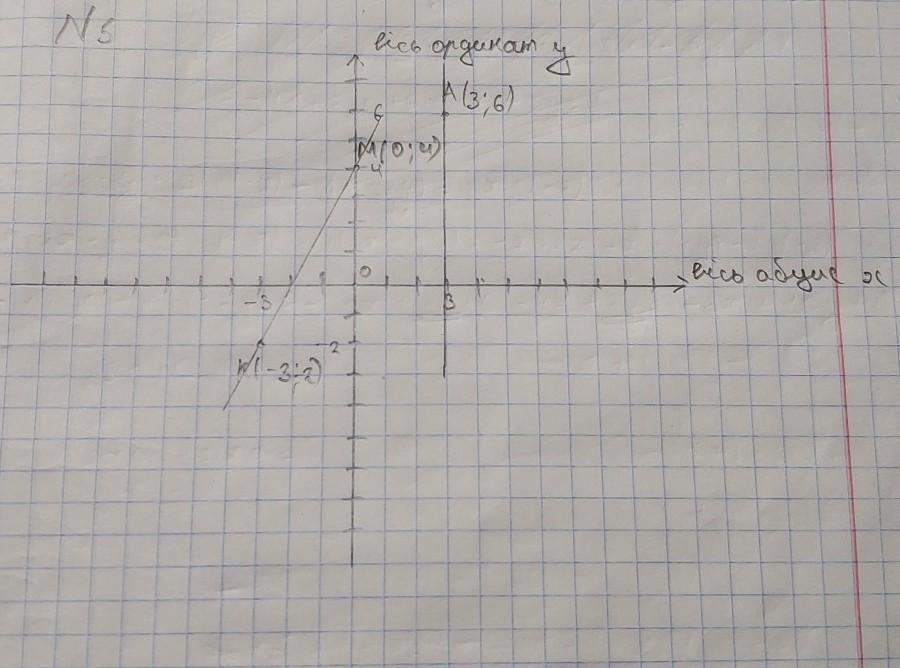 N5
вісь ординат y
A(3;6)
6
M(0;4)
4
0
вісь абцис x
-3
3
-2
K(-3;-2)